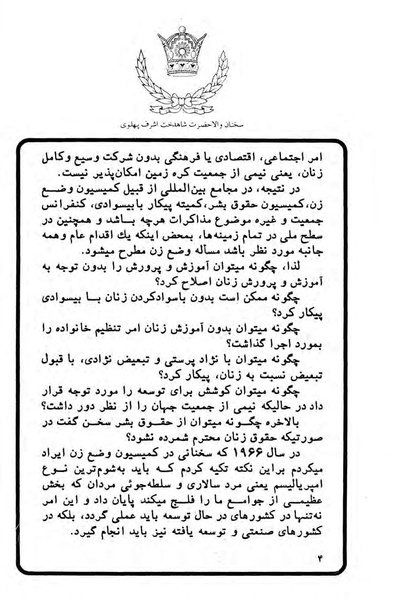 سخنان والاحضرت شاهدخت اشرف پهلوی
امر اجتماعی، اقتصادی یا فرهنگی بدون شرکت وسیع وکامل
زنان، یعنی نیمی از جمعیت کره زمین امکان‌پذیر نیست.
در نتیجه، در مجامع بین‌المللی از قبیل کمیسیون وضع
زن،کمیسیون حقوق بشر،کمیته پیکار بابیسوادی، کنفرانس
جمعیت و غیره موضوع مذاکرات هرچه باشد و همچنین در
سطح ملی در تمام زمینه‌ها، بمحض اینکه یك اقدام عام وهمه
جانبه مورد نظر باشد مسأله وضع زن مطرح میشود.
لذا، چگونه میتوان آموزش و پرورش را بدون توجه به
آموزش و پرورش زنان اصلاح کرد؟
چگونه ممکن است بدون باسوادکردن زنان با بیسوادی
پیکار کرد؟
چگونه میتوان بدون آموزش زنان امر تنظیم خانواده را
بمورد اجرا گذاشت؟
چگونه میتوان با نژاد پرستی و تبعیض نژادی، با قبول
تبعیض نسبت به زنان، پیکار کرد؟
چگونه میتوان کوشش برای توسعه را مورد توجه قرار
داد در حالیکه نیمی از جمعیت جهان را از نظر دور داشت؟
بالاخره چگونه میتوان از حقوق بشر سخن گفت در
صورتیکه حقوق زنان محترم شمرده نشود؟
در سال ۱۹۶۶ که سخنانی در کمیسیون وضع زن ایراد
میکردم براین نکته تکیه کردم که باید به‌شوم‌ترین نوع
امپریالیسم یعنی مرد سالاری و سلطه‌جوئی مردان که بخش
عظیمی از جوامع ما را فلج میکند پایان داد و این امر
نه‌تنها در کشورهای در حال توسعه باید عملی گردد، بلکه در
کشورهای صنعتی و توسعه یافته نیز باید انجام گیرد.
۴